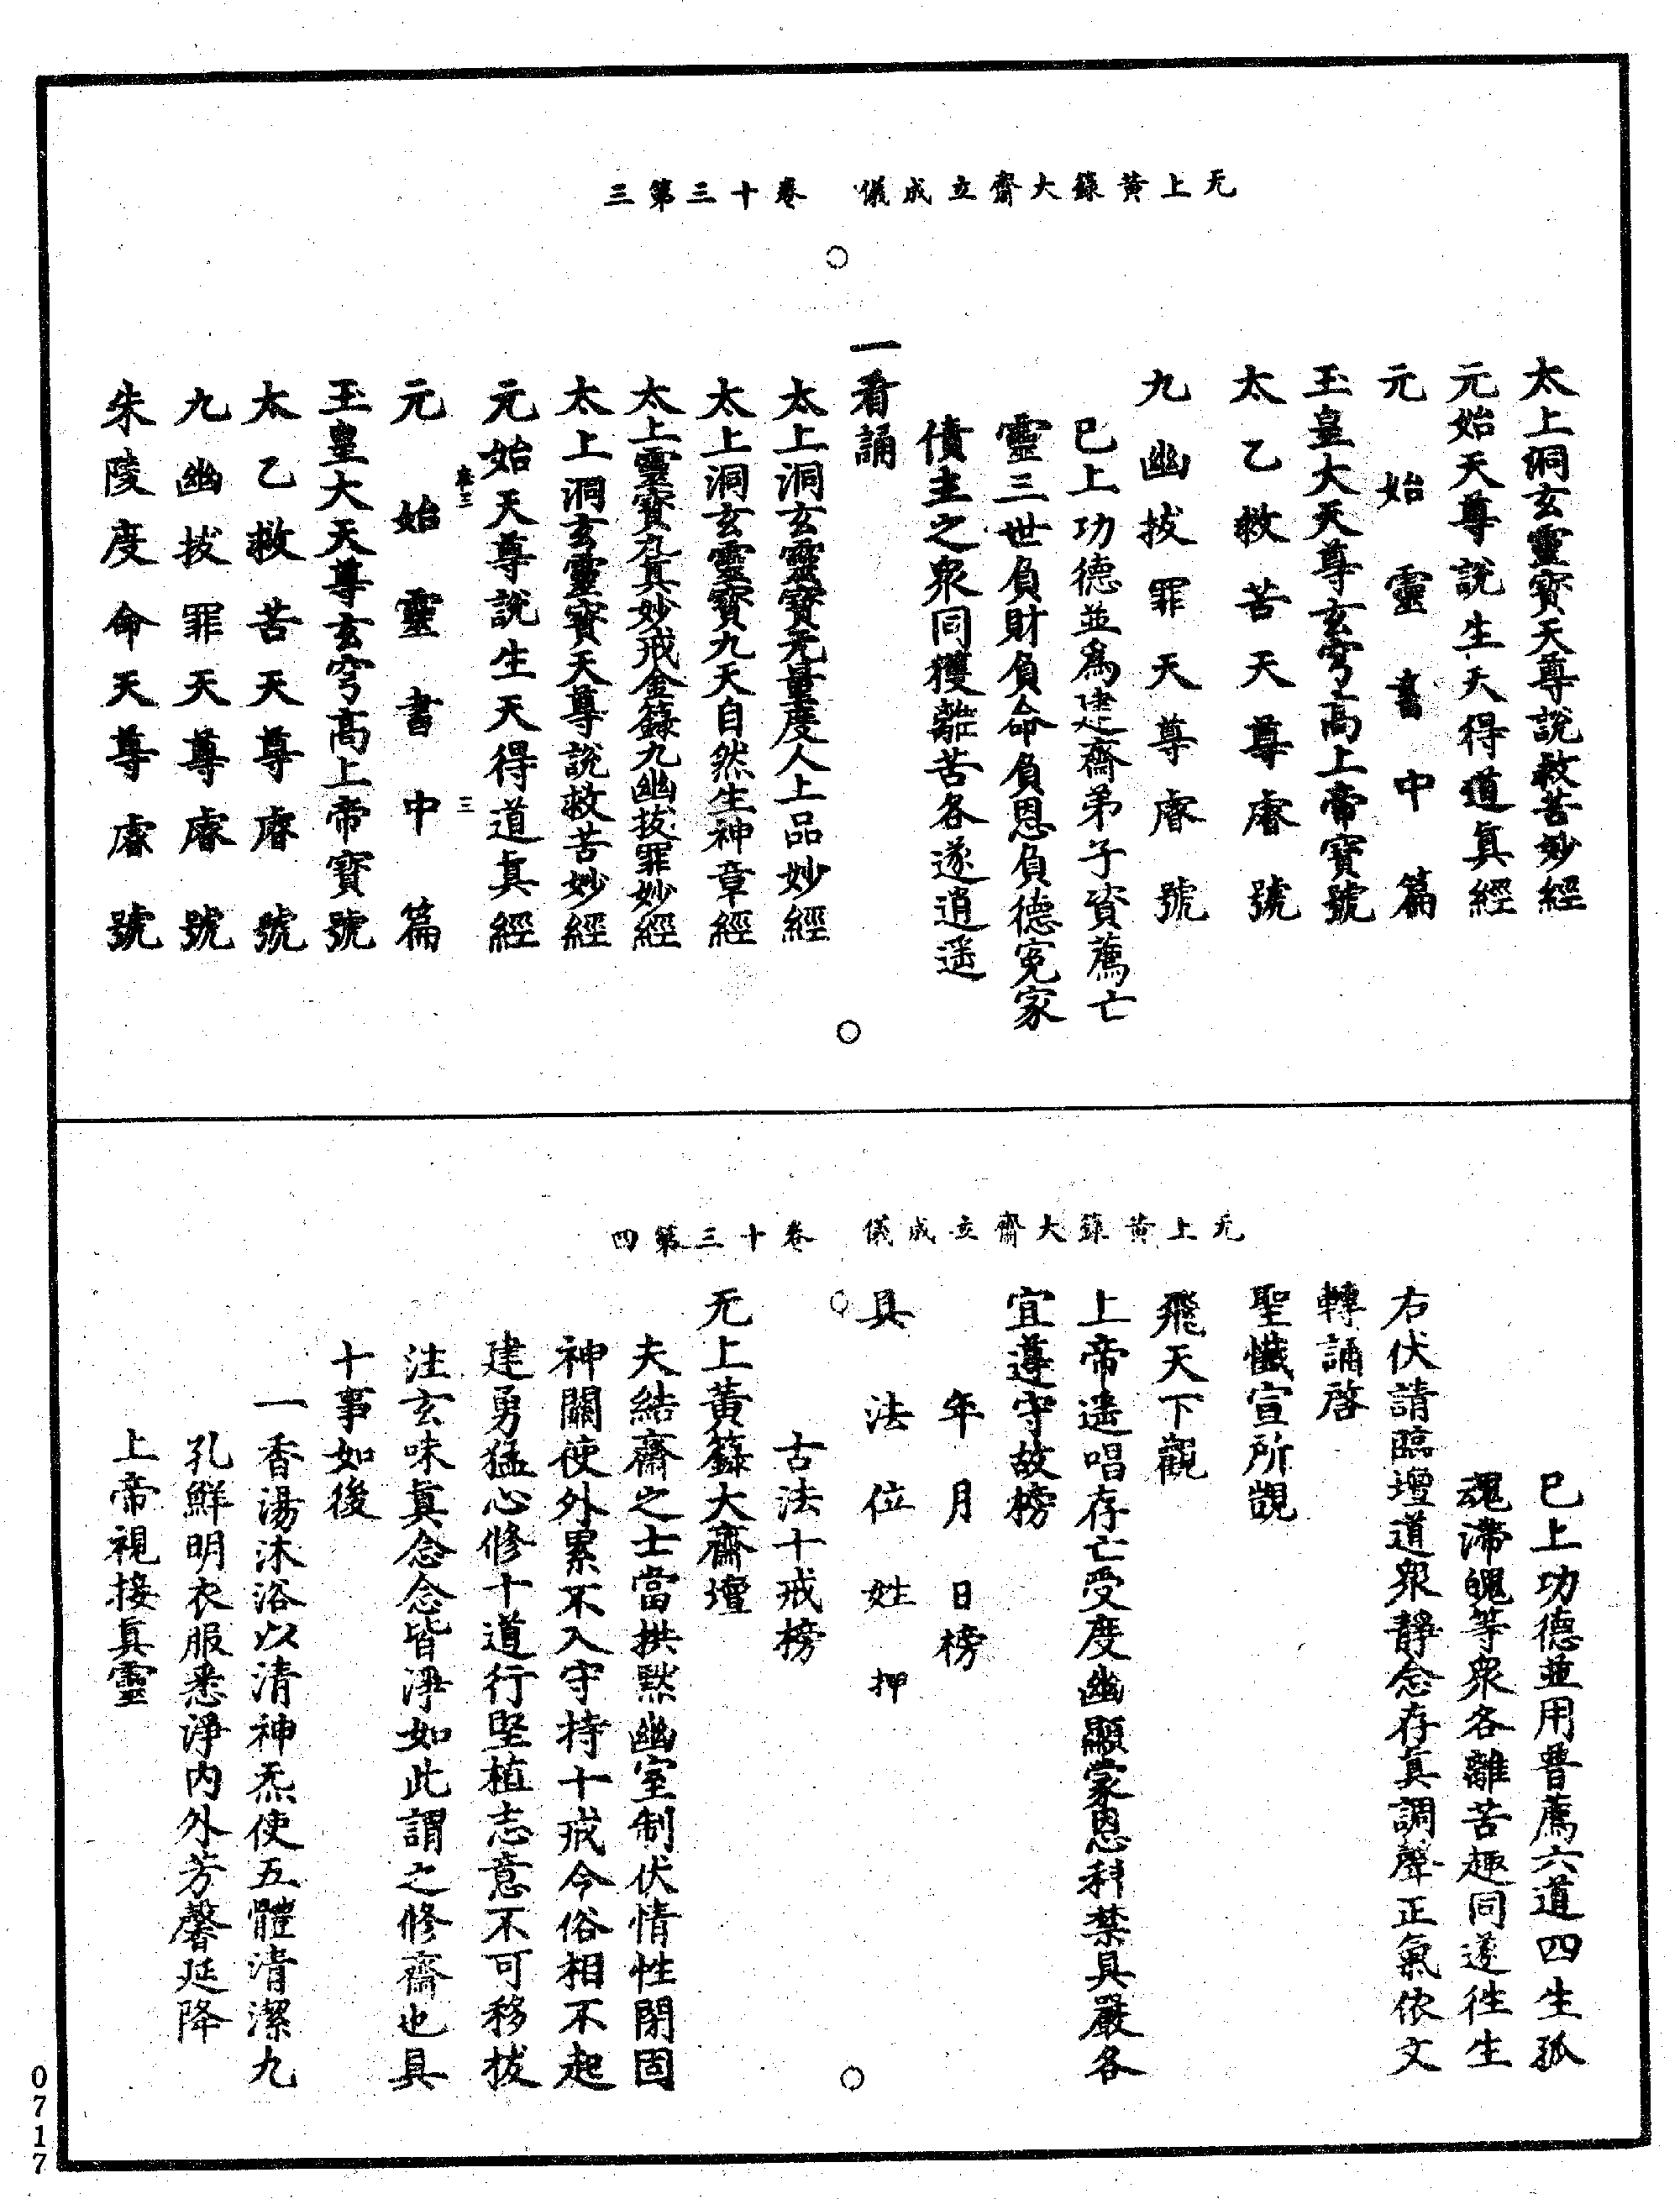 无上黃籙大齋立成儀　卷十三第三
太上洞玄靈寶天尊說救苦妙經
元始天尊說生天得道真經
元始靈書中篇
玉皇大天尊玄穹高上帝寶號
太乙救苦天尊睿號
九幽拔罪天尊睿號
已上功德並為建齋弟子資薦亡
靈三世負財負命負恩負德冤家
債主之衆同獲離苦各遂逍遥
一看誦
太上洞玄靈寶无量度人上品妙經
太上洞玄靈寶九天自然生神章經
太上靈寶九真妙戒金籙九幽拔罪妙經
太上洞玄靈寶天尊說救苦妙經
元始天尊說生天得道真經
三
元始靈書中篇
玉皇大天尊玄穹高上帝寶號
太乙救苦天尊睿號
九幽拔罪天尊睿號
朱陵度命天尊睿號
无上黃籙大齋立成儀　卷十三第四
已上功德並用普薦六道四生孤
魂滯魄等衆各離苦趣同遂往生
右伏請臨壇道衆靜念存真調聲正氣依文
轉誦啓
聖懺宣所覬
飛天下觀
上帝遥唱存亡受度幽顯蒙恩科禁具嚴各
宜遵守故榜
年月日榜
具法位姓押
古法十戒榜
无上黃籙大齋壇
夫結齋之士當拱默幽室制伏情性閉固
神關使外累不入守持十戒令俗相不起
建勇猛心修十道行堅植志意不可移拔
注玄味真念念皆淨如此謂之修齋也具
十事如後
一香湯沐浴以清神炁使五體清潔九
孔鮮明衣服悉淨內外芳馨延降
上帝視接真靈
0717